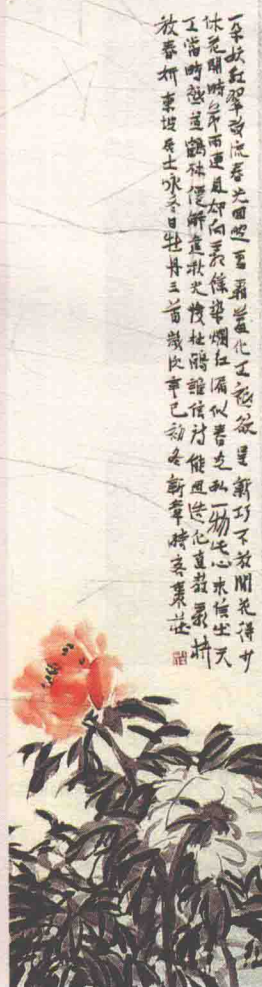 一朵妖紅翠欲流春光回照雪霜羞化工祗欲呈新巧不放閒花得少
休花開時節雨連風却向霜餘染爛紅漏似春光私一物此心未信出天
工當時祗道鶴林僊解遣秋光發杜鵑誰信詩能回造化直教霜枿
放春妍東坡居士詠冬日牡丹三首歲次辛巳初冬新華時客